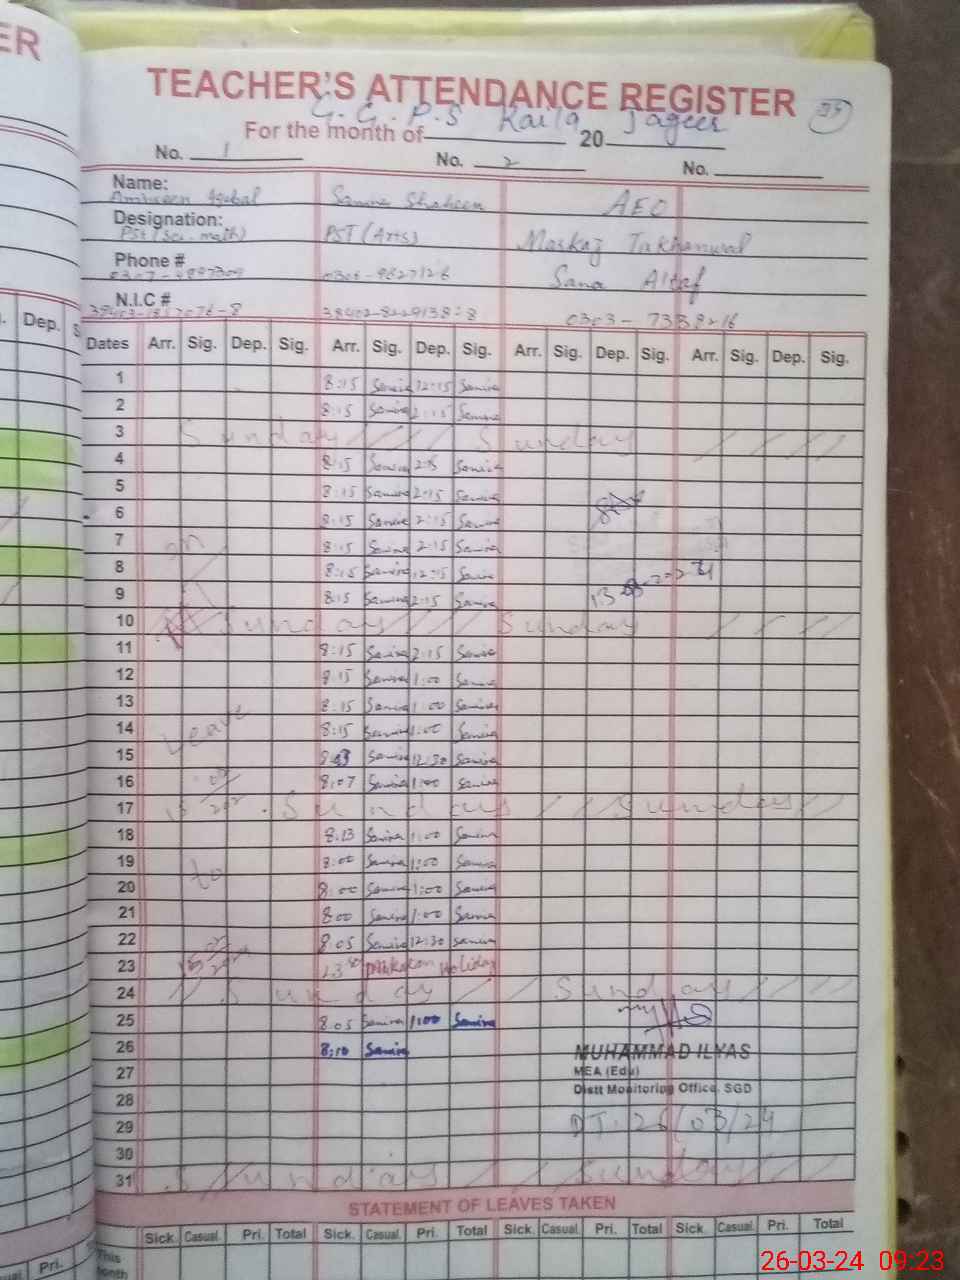 ER
TEACHER'S ATTENDANCE REGISTER
G.G.P.S Jageer
For the month of 20
No. 1 No. 2 No.
Name: Iqbal Samina Shaheen AEO
Designation: PST (Sci. math) PST (Arts) Markaz Takhanwal
Phone # Sana Altaf
N.I.C #
Dep.
Dates Arr. Sig. Dep. Sig. Arr. Sig. Dep. Sig. Arr. Sig. Dep. Sig. Arr. Sig. Dep. Sig.
1 8:15 Samina 12:15 Samina
2 8:15 Samina 2:15 Samina
3 Sunday Sunday
4 8:15 Samina 2:15 Samina
5 8:15 Samina 2:15 Samina
6 8:15 Samina 2:15 Samina
7 8:15 Samina 2:15 Samina
8 8:15 Samina 12:15 Samina
9 8:15 Samina 2:15 Samina
10 Sunday Sunday
11 8:15 Samina 2:15 Samina
12 8:15 Samina 1:00 Samina
13 8:15 Samina 1:00 Samina
14 Leave 8:15 Samina 1:00 Samina
15 Samina 12:30 Samina
16 8:07 Samina 1:00 Samina
17 Sunday Sunday
18 8:13 Samina 1:00 Samina
19 to 8:00 Samina 1:00 Samina
20 8:00 Samina 1:00 Samina
21 8:00 Samina 1:00 Samina
22 8:05 Samina 12:30 Samina
23 Holiday
24 Sunday Sunday
25 8:05 Samina 1:00 Samina
26 8:10 Samina
MUHAMMAD ILYAS
27 MEA (Edu)
28 Distt Monitoring Office, SGD
29 DT. 26/03/24
30
31 Sunday Sunday
STATEMENT OF LEAVES TAKEN
Sick. Casual. Pri. Total Sick. Casual. Pri. Total Sick. Casual. Pri. Total Sick. Casual. Pri. Total
This month
Pri.
26-03-24 09:23